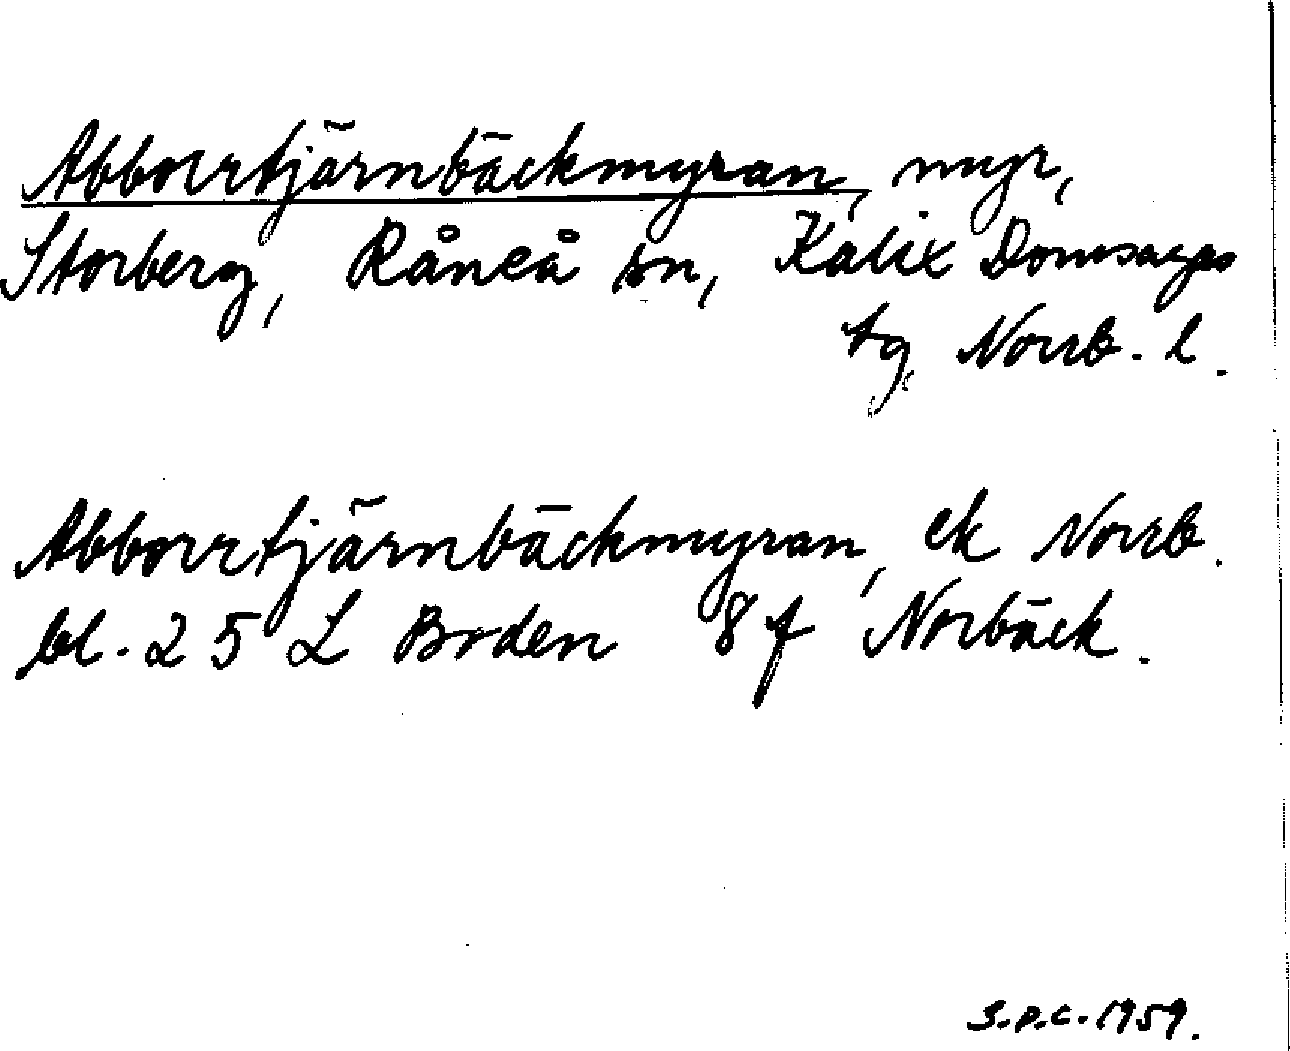 Abborrtjärnbäckmyran, myr,
Storberg, Råneå sn, Kalix Domsagas
tg, Norrb. l.
Abborrtjärnbäckmyran, ek Norrb.
bl. 25 L Boden 8f Norbäck.
S.P.C. 1959.